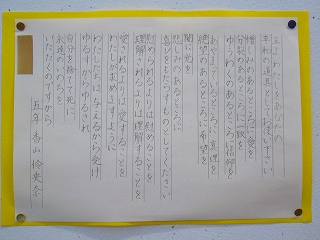 主よわたしをあなたの
平和の道具としてお使いください
憎しみのあるところに愛を
分裂のあるところに一致を
ぎわくのあるところに信仰を
あやまっているところに真理を
絶望のあるところに希望を
闇に光を
悲しみのあるところに
喜びをもたらすものとしてください
慰められるよりは慰めることを
理解されるよりは理解することを
愛されるよりは愛することを
わたしが求めますように
わたしたちは与えるから受け
ゆるすからゆるされ
自分を捨てて死に
永遠のいのちを
いただくのですから
五年 香山